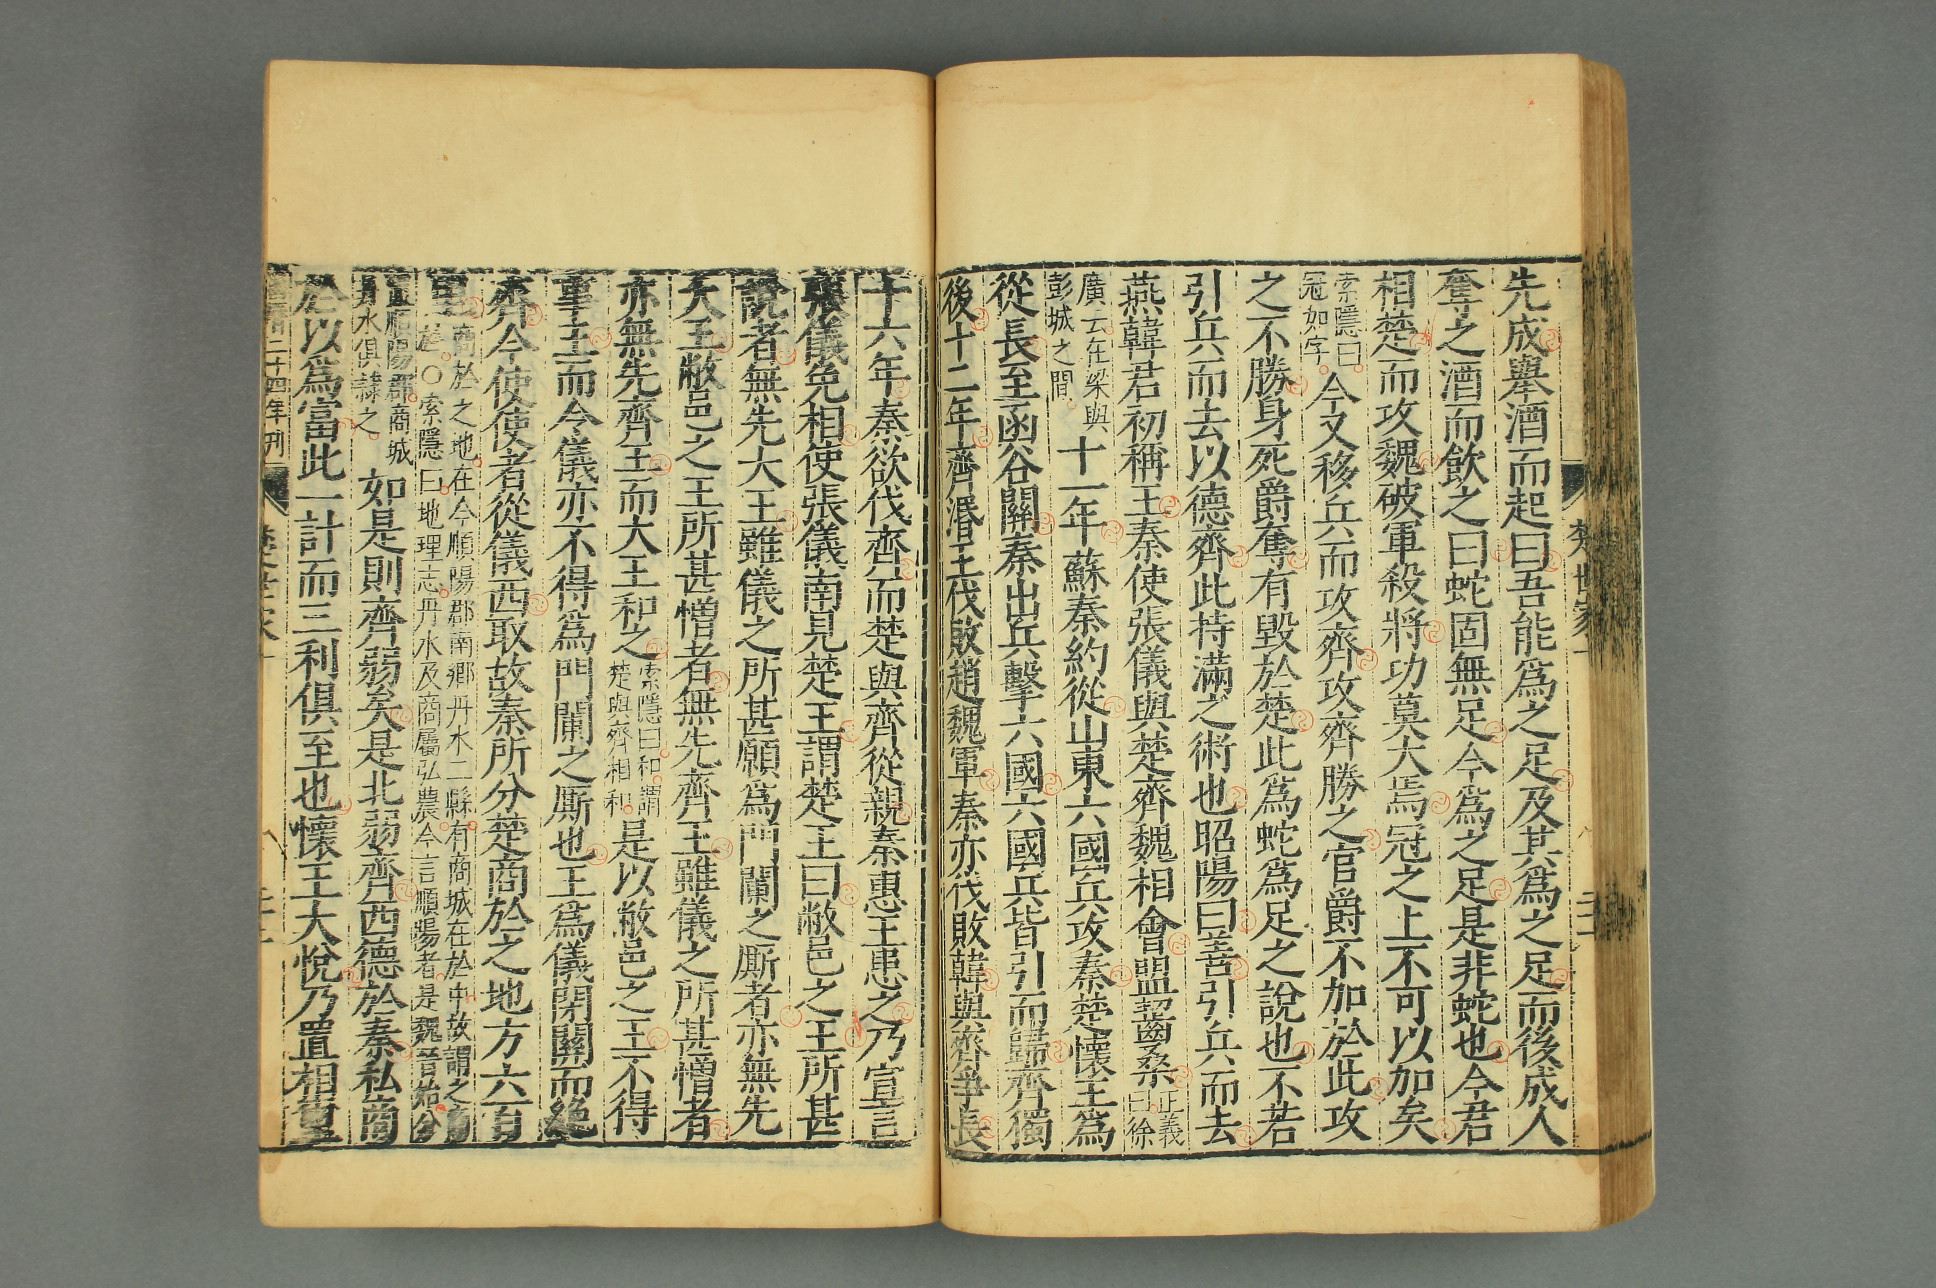 先成舉酒而起曰吾能爲之足及其爲之足而後成人
奪之酒而飲之曰蛇固無足今爲之足是非蛇也今君
相楚而攻魏破軍殺將功莫大焉冠之上不可以加矣
索隱曰冠如字今又移兵而攻齊攻齊勝之官爵不加於此攻
之不勝身死爵奪有毀於楚此爲蛇爲足之說也不若
引兵而去以德齊此持滿之術也昭陽曰善引兵而去
燕韓君初稱王秦使張儀與楚齊魏相會盟齧桑正義曰徐
廣云在梁與彭城之間十一年蘇秦約從山東六國兵攻秦楚懷王爲
從長至函谷關秦出兵擊六國六國兵皆引而歸齊獨
後十二年齊湣王伐敗趙魏軍秦亦伐敗韓與齊爭長
楚世家
十六年秦欲伐齊而楚與齊從親秦惠王患之乃宣言
張儀免相使張儀南見楚王謂楚王曰敝邑之王所甚
說者無先大王雖儀之所甚願爲門闌之厮者亦無先
大王敝邑之王所甚憎者無先齊王雖儀之所甚憎者
亦無先齊王而大王和之索隱曰和謂楚與齊相和是以敝邑之王不得
事王而令儀亦不得爲門闌之厮也王爲儀閉關而絶
齊今使使者從儀西取故秦所分楚商於之地方六百
里商於之地在今順陽郡南鄉丹水二縣有商城在於中故謂之商
於○索隱曰地理志丹水及商屬弘農今言順陽者是魏晉始分
置順陽郡商城丹水俱隸之如是則齊弱矣是北弱齊西德於秦私商
於以爲富此一計而三利俱至也懷王大悅乃置相璽
二十四年刊
楚世家